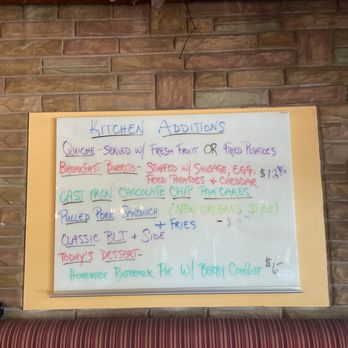 KITCHEN ADDITIONS
QUICHE - SERVED W/ FRESH FRUIT OR FRIED POTATOES
BREAKFAST BURRITO - STUFFED W/ SAUSAGE, EGG,
FRIED POTATOES + CHEDDAR
CAST IRON CHOCOLATE CHIP PANCAKES
PULLED PORK SANDWICH (NEW ORLEANS STYLE)
+ FRIES
CLASSIC BLT + SIDE
TODAY'S DESSERT -
HOMEMADE BUTTERMILK PIE W/ BERRY COMPOTE $6